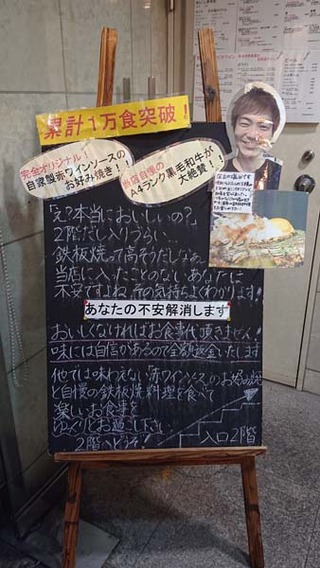 累計1万食突破!
完全オリジナル!
自家製赤ワインソースの
お好み焼き!!
当店自慢の
A4ランク黒毛和牛が
大絶賛!!
「え?本当においしいの?」
2階だし入りづらい…
鉄板焼って高そうだしなぁ
当店に入ったことのないあなたは
不安ですよね その気持ちよくわかります!
あなたの不安解消します
おいしくなければお食事代頂きません!
味には自信があるので全額返金いたします
他では味わえない赤ワインソースのお好み焼
と自慢の鉄板焼料理を食べて
楽しいお食事を
ゆっくりお過ごし下さい
2階へどうぞ!
入口2階